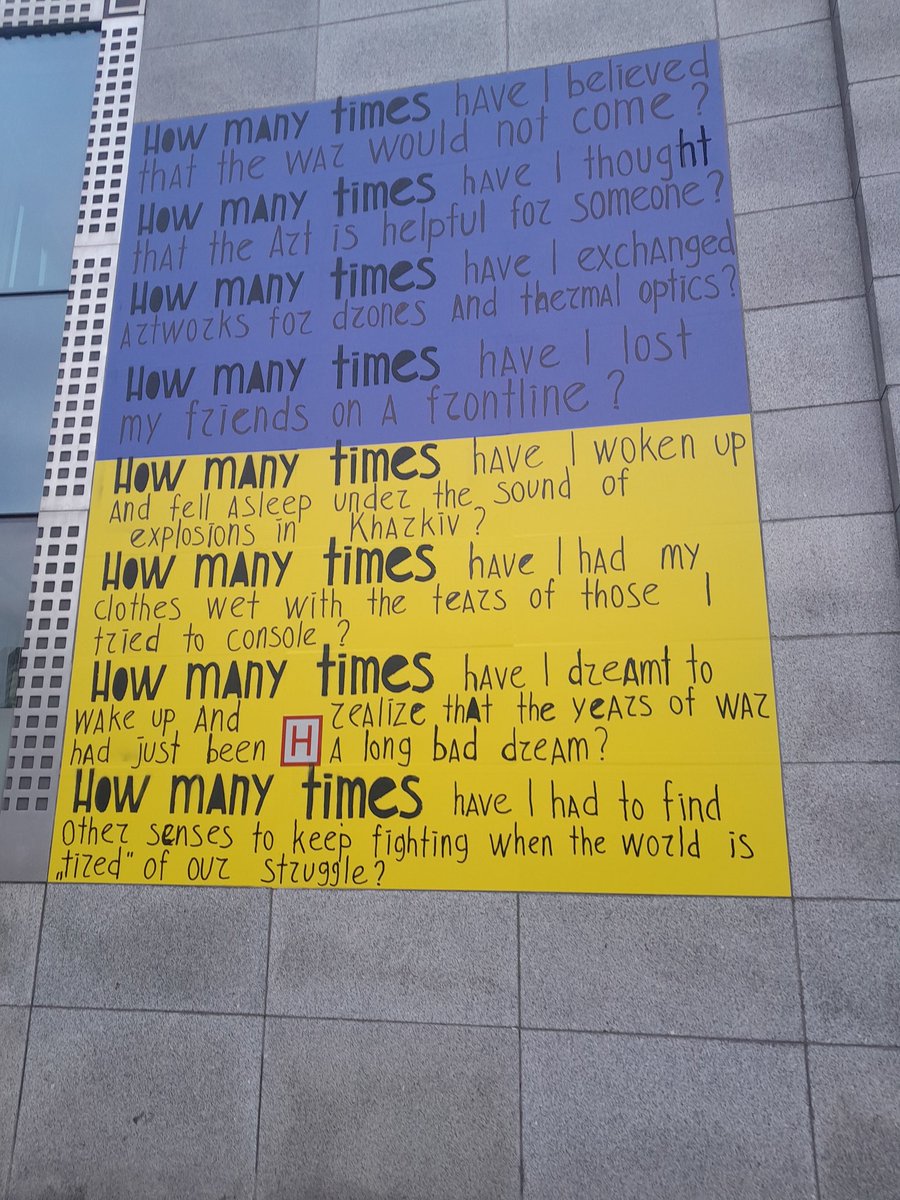 HOW mANy times hAVE I believed
thAt the WAR WOULD not come?
HOW mANy times hAVE I thought
thAt the ARt is helpful foR someone?
HOW mANy times hAVE I exchANged
ARtwoRks foR dRones And theRmAl optics?
HOW mANy times hAVE I lost
my fRiends on A fRontline?
HOW mANy times hAVE I woken up
And fell Asleep undeR the sound of
explosions in KhARkiv?
HOW mANy times hAVE I hAd my
clothes wet with the teARs of those I
tRied to console?
HOW mANy times hAVE I dReAmt to
wAke up And ReAlize thAt the yeARs of wAR
hAd just been H A long bAd dReAm?
HOW mANy times hAVE I hAd to find
otheR senses to keep fighting when the woRld is
„tiRed“ of ouR stRuggle?